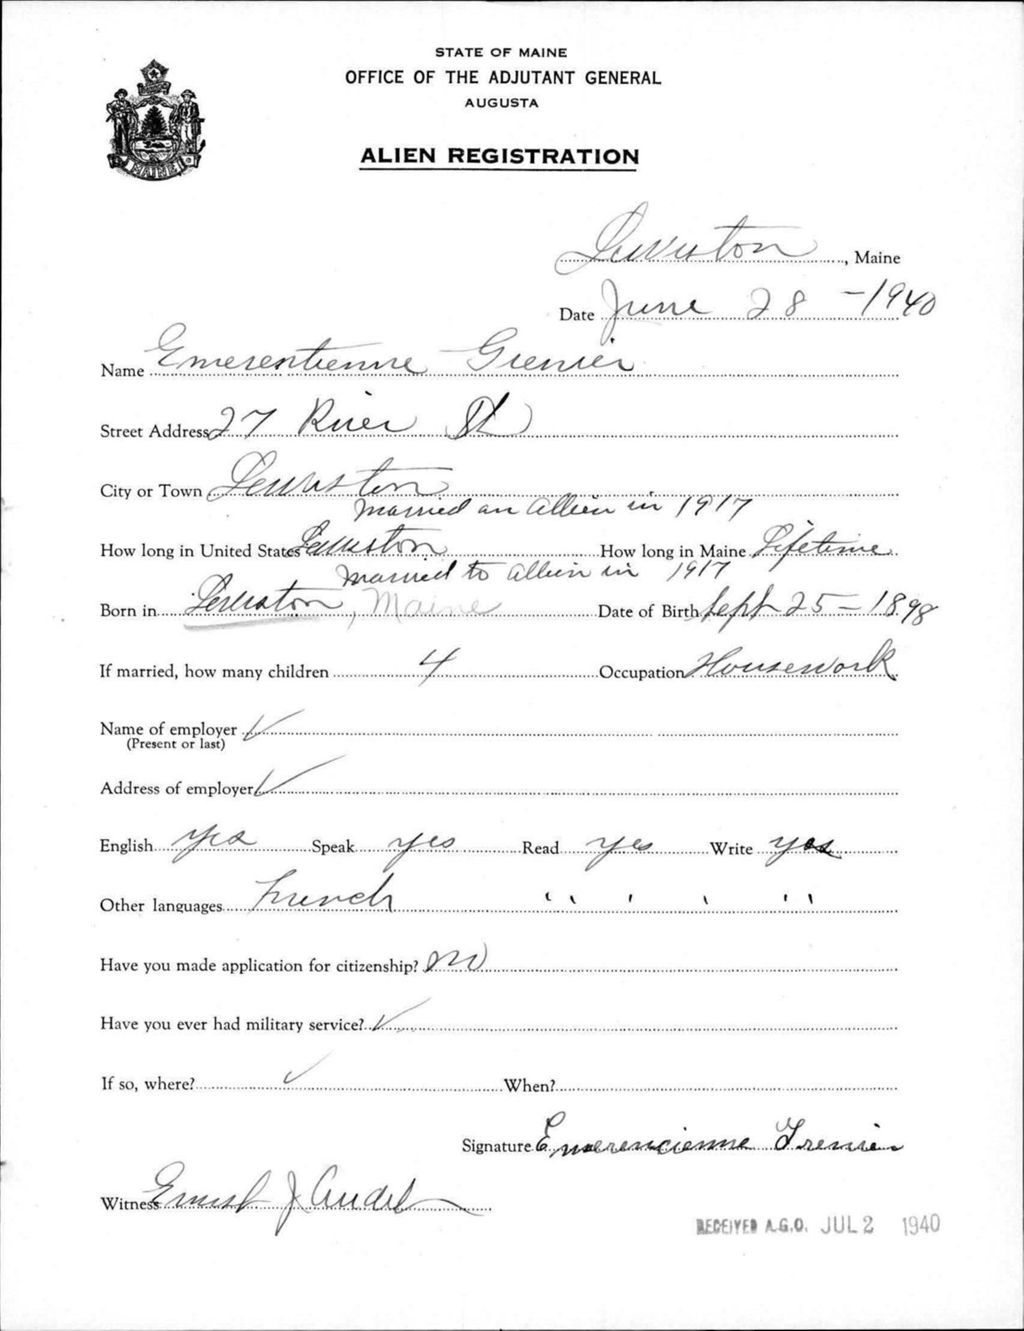 STATE OF MAINE
OFFICE OF THE ADJUTANT GENERAL
AUGUSTA
ALIEN REGISTRATION
MAINE
Lewiston, Maine
Date June 28 - 1940
Name Emerentienne Grenier
Street Address 27 River St
City or Town Lewiston
Married an Allien in 1917
How long in United States Lewiston How long in Maine Lifetime
Married to Allien in 1917
Born in Lewiston, Maine Date of Birth Sept 25 - 1898
If married, how many children 4 Occupation Housework
Name of employer ✓
(Present or last)
Address of employer ✓
English yes Speak yes Read yes Write yes
Other languages French " " " "
Have you made application for citizenship? No
Have you ever had military service? ✓
If so, where? ✓ When?
Signature Emerencienne Grenier
Witness Ernest J Audet
RECEIVED A.G.O. JUL 2 1940